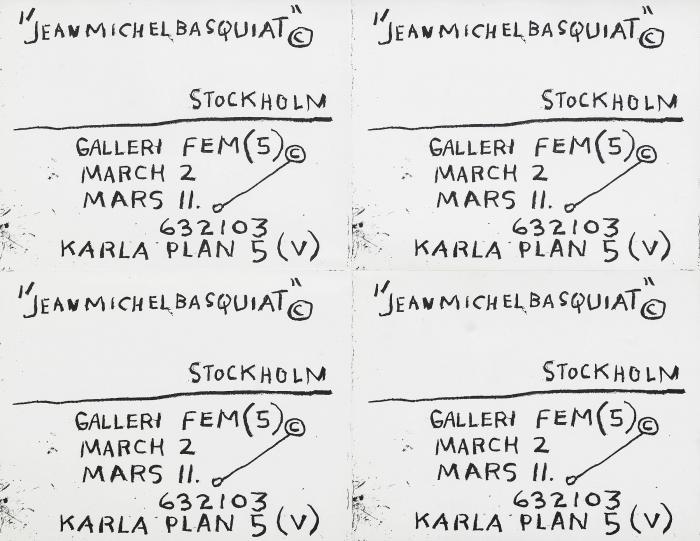 "JEAN MICHEL BASQUIAT" ©
STOCKHOLM
GALLERI FEM (5) ©
MARCH 2
MARS 11.
632103
KARLA PLAN 5 (V)
"JEAN MICHEL BASQUIAT" ©
STOCKHOLM
GALLERI FEM (5) ©
MARCH 2
MARS 11.
632103
KARLA PLAN 5 (V)
"JEAN MICHEL BASQUIAT" ©
STOCKHOLM
GALLERI FEM (5) ©
MARCH 2
MARS 11.
632103
KARLA PLAN 5 (V)
"JEAN MICHEL BASQUIAT" ©
STOCKHOLM
GALLERI FEM (5) ©
MARCH 2
MARS 11.
632103
KARLA PLAN 5 (V)